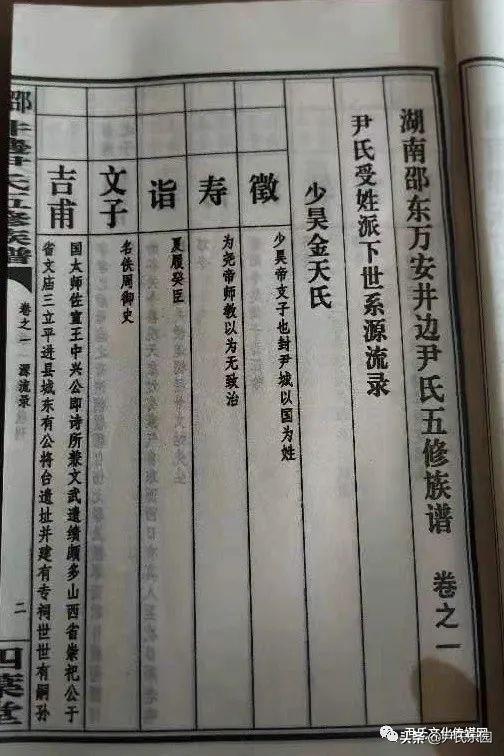 湖南邵东万安井边尹氏五修族谱 卷之一
尹氏受姓派下世系源流录
少昊金天氏
徵
少昊帝支子也封尹城以国为姓
寿
为尧帝师教以为无致治
诣
夏履癸臣
文子
名佚周御史
吉甫
国太师佐宣王中兴公即诗所兼文武遗绩颇多山西省崇祀公于
省文庙三立平进县城东有公将台遗址并建有专祠世世有嗣孙
氏五修族谱
卷之一
源流录
二
头条@尹氏家园
尹氏文化传媒网